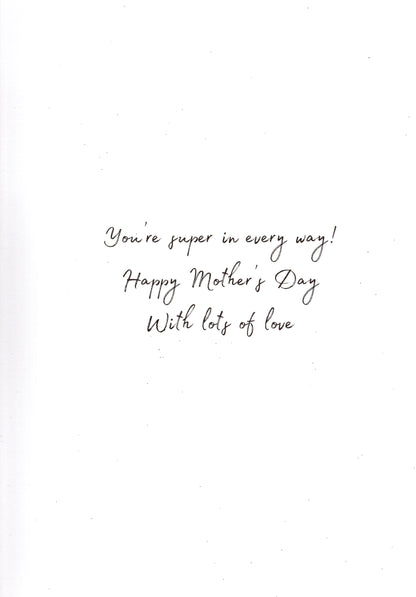 You're super in every way!
Happy Mother's Day
With lots of love